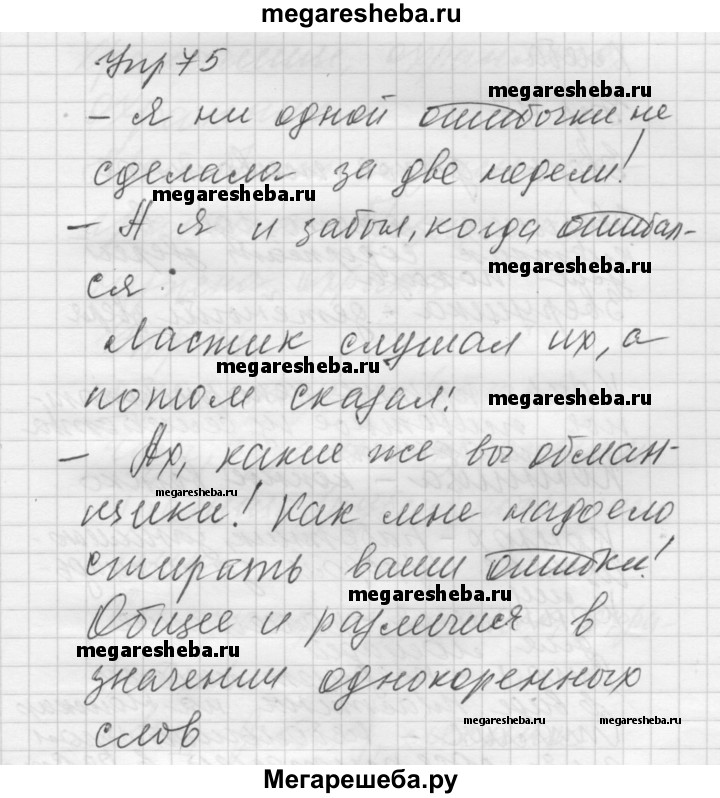 megaresheba.ru
Упр 75
megaresheba.ru
– Я ни одной ошибочки не
сделала за две недели!
megaresheba.ru
– А я и забыл, когда ошибал-
ся.
Ластик слушал их, а
megaresheba.ru
потом сказал:
megaresheba.ru
– Ах, какие же вы обман-
megaresheba.ru
щики! Как мне надоело
стирать ваши ошибки!
megaresheba.ru
Общее и различия в
megaresheba.ru
значении однокоренных
megaresheba.ru
megaresheba.ru
слов
Мегарешеба.ру